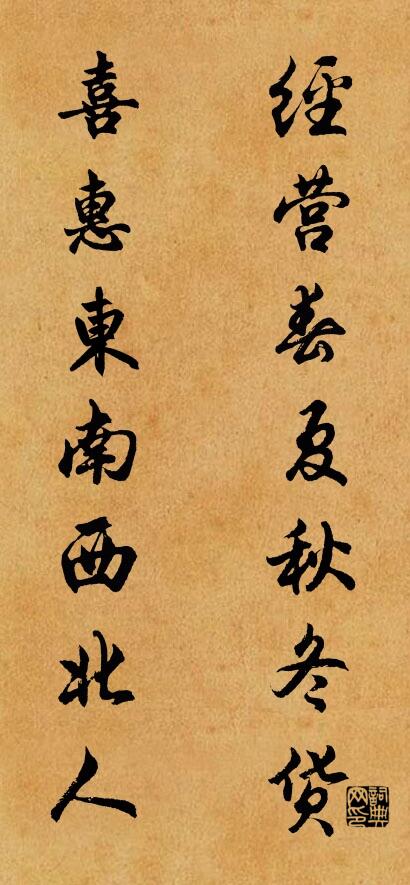 經营春夏秋冬货
喜惠東南西北人
詞典
网印